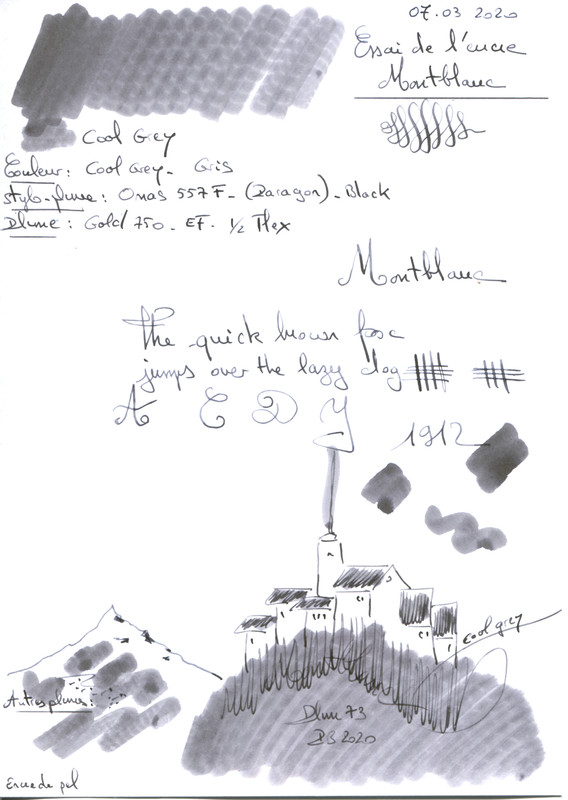 07.03 2020
Essai de l'encre
Montblanc
Cool Grey
Couleur: Cool Grey - Gris
Stylo-plume: Omas 557F - (Paragon) - Black
Plume: Gold 750 - EF. 1/2 Flex
Montblanc
The quick brown fox
jumps over the lazy dog
A C D Y
1912
cool grey
Autres plumes:
Plum 73
2020
Encre de pol